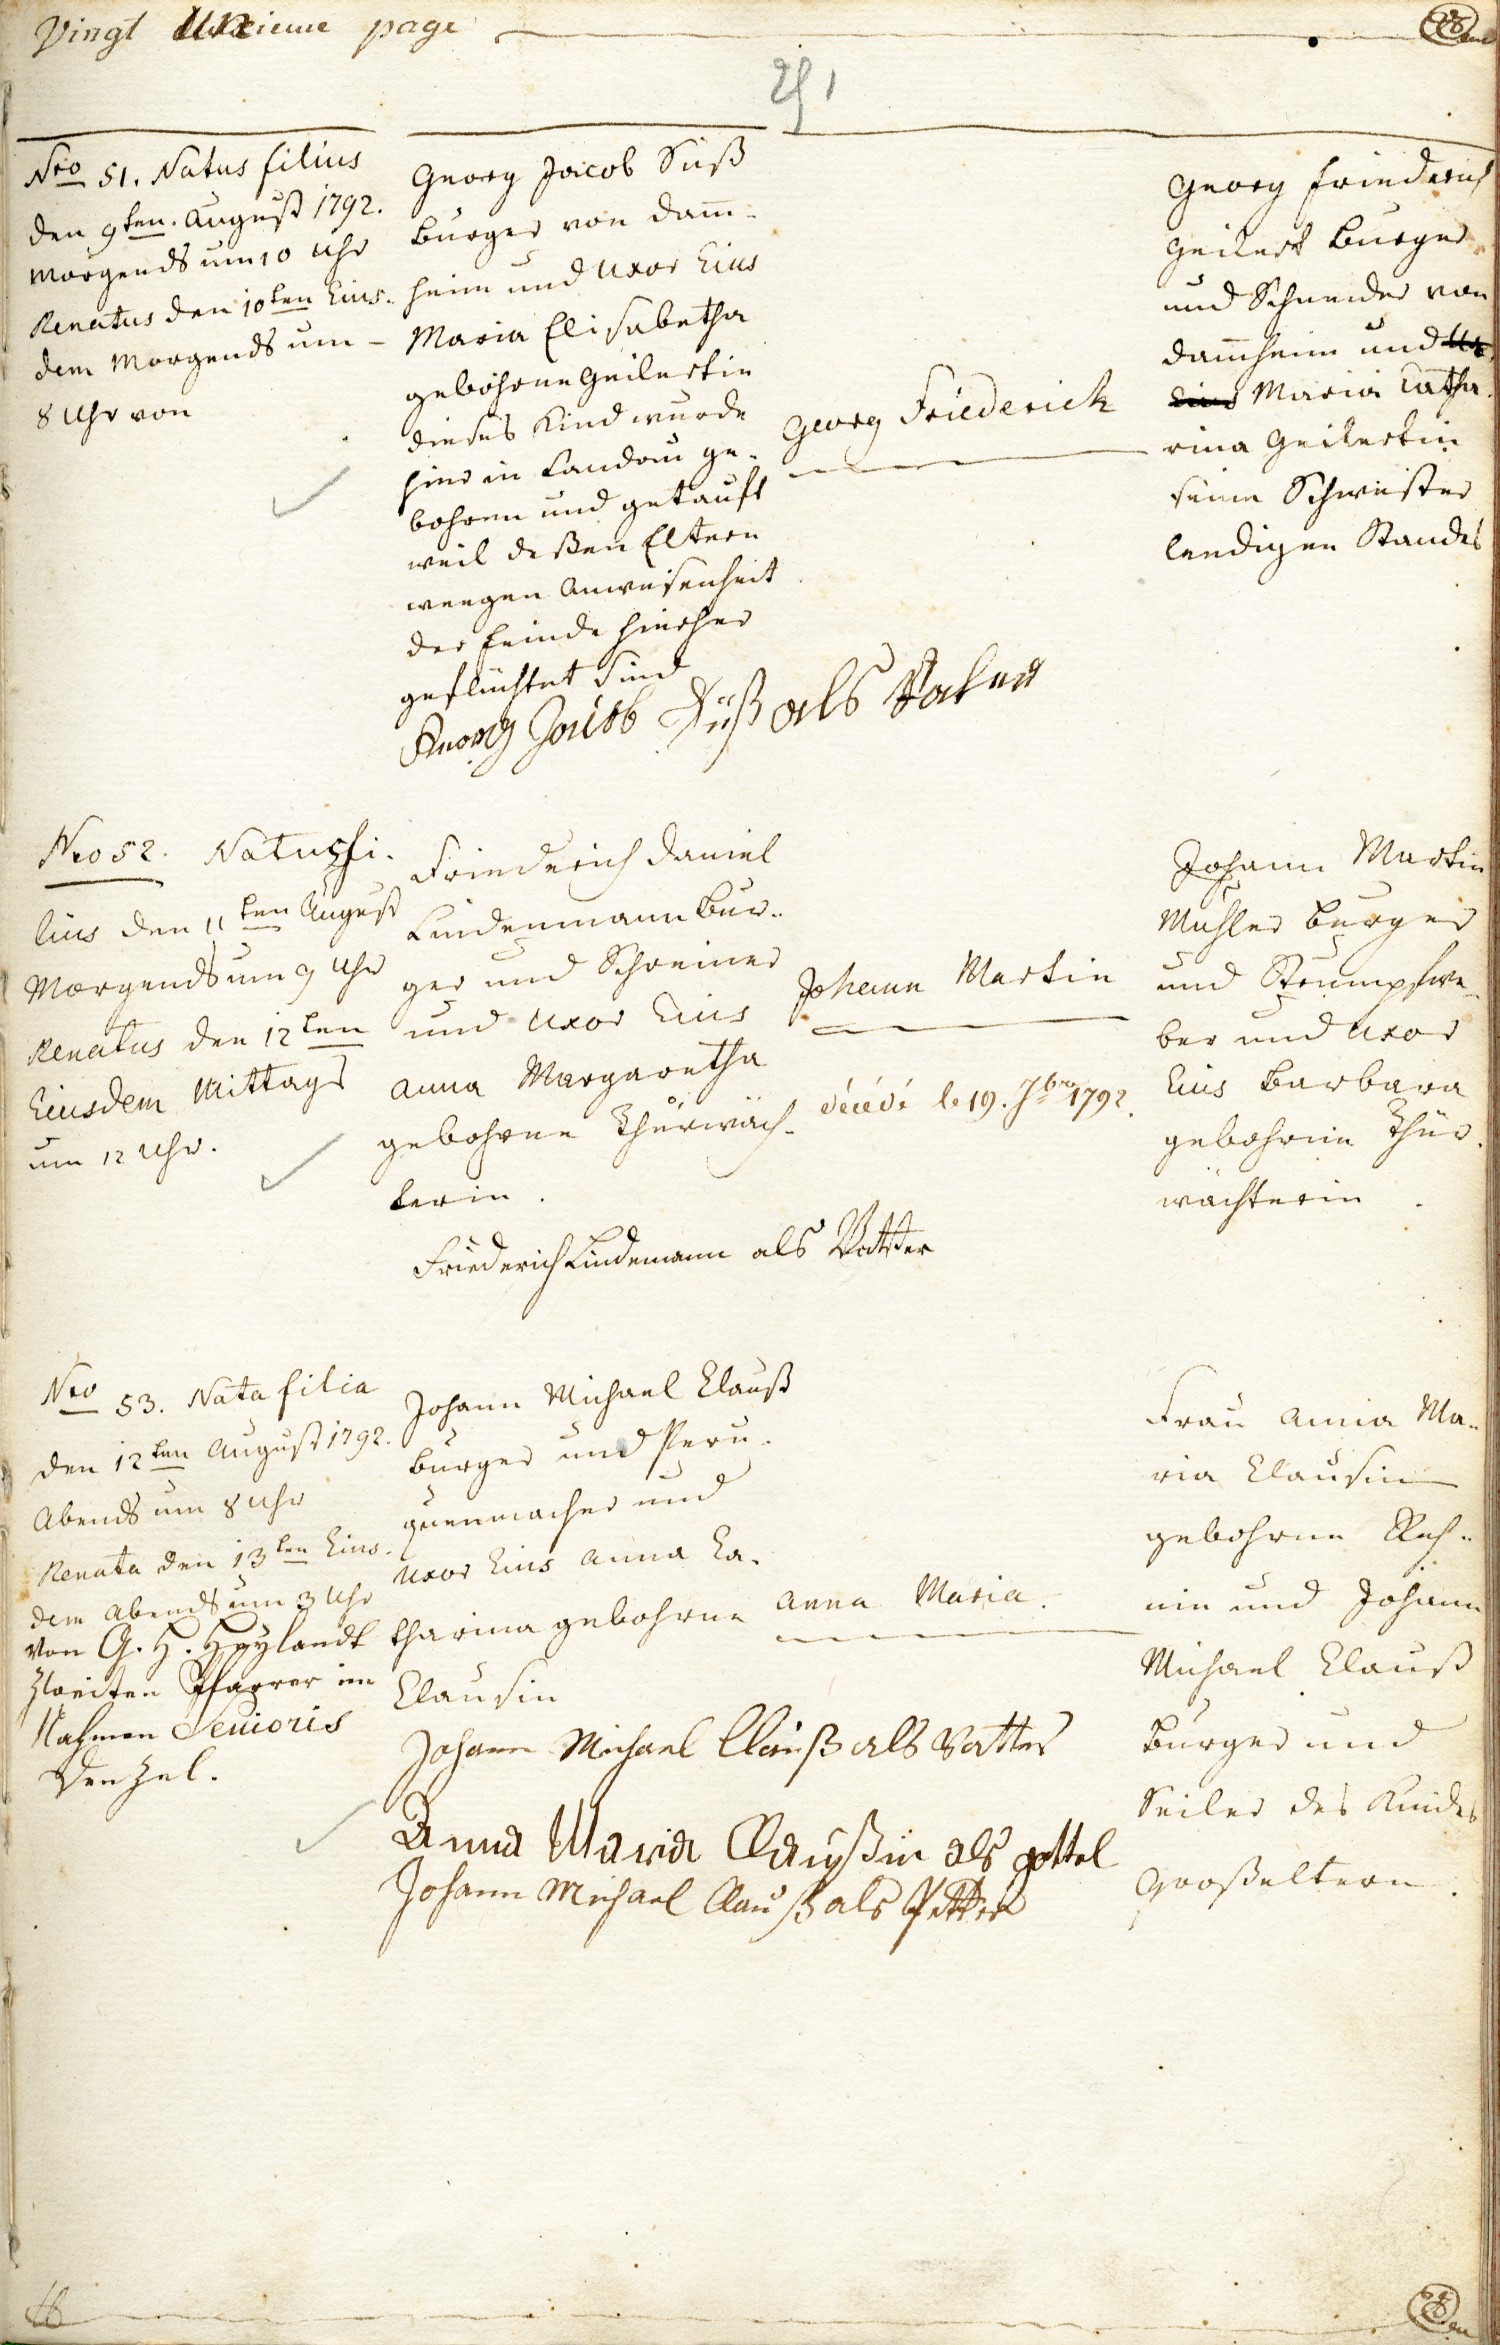 Vingt Unxieme page
21
Nro 51. Natus filius
den 9ten. August 1792.
Morgends um 10 Uhr
Renatus den 10ten Eius-
dem Morgends um
8 Uhr von
Georg Jacob Süß
burger von dam̄-
heim und Uxor Eius
Maria Elisabetha
gebohrne Geilertin
dieses Kind wurde
hier in Landau ge-
bohren und getauft
weil deßen Eltern
weegen Anwesenheit
der Feinde hierher
geflüchtet sind
Georg Jacob Süß als Vater
Georg Friederich
Georg Friederich
Geilert burger
und Schneider von
dam̄heim und Ux.
Eius Maria Catha-
rina Geilertin
seine Schwester
leedigen Standes
Nro 52. Natus fi-
lius den 11ten August
Morgends um 9 Uhr
Renatus den 12ten
Eiusdem Mittags
um 12 Uhr.
Friederich Daniel
Lindenmann bur-
ger und Schreiner
und Uxor Eius
Anna Margaretha
gebohrne Thürwäch-
terin.
Friederich Lindemann als Vatter
Johann Martin
décédé le 19. 7bre 1792.
Johann Martin
Mühler burger
und Strumpfwe-
ber und Uxor
Eius Barbara
gebohrne Thür-
wächterin
Nro 53. Nata filia
den 12ten August 1792.
Abends um 8 Uhr
Renata den 13ten Eius-
dem Abends um 3 Uhr
von G. H. Heylandt
zweiten Pfarrer im
Nahmen Senioris
Denzel.
Johann Michael Clauß
burger und Peru-
quenmacher und
Uxor Eius Anna Ca-
tharina gebohrne
Clausin
Johann Michael Clauß als Vatter
Anna Maria Claußin als gottel
Johann Michael Clauß als Petter
Anna Maria.
Frau Anna Ma-
ria Clausin
gebohrne Reh-
nin und Johann
Michael Clauß
burger und
Seiler des Kindes
Großeltern.